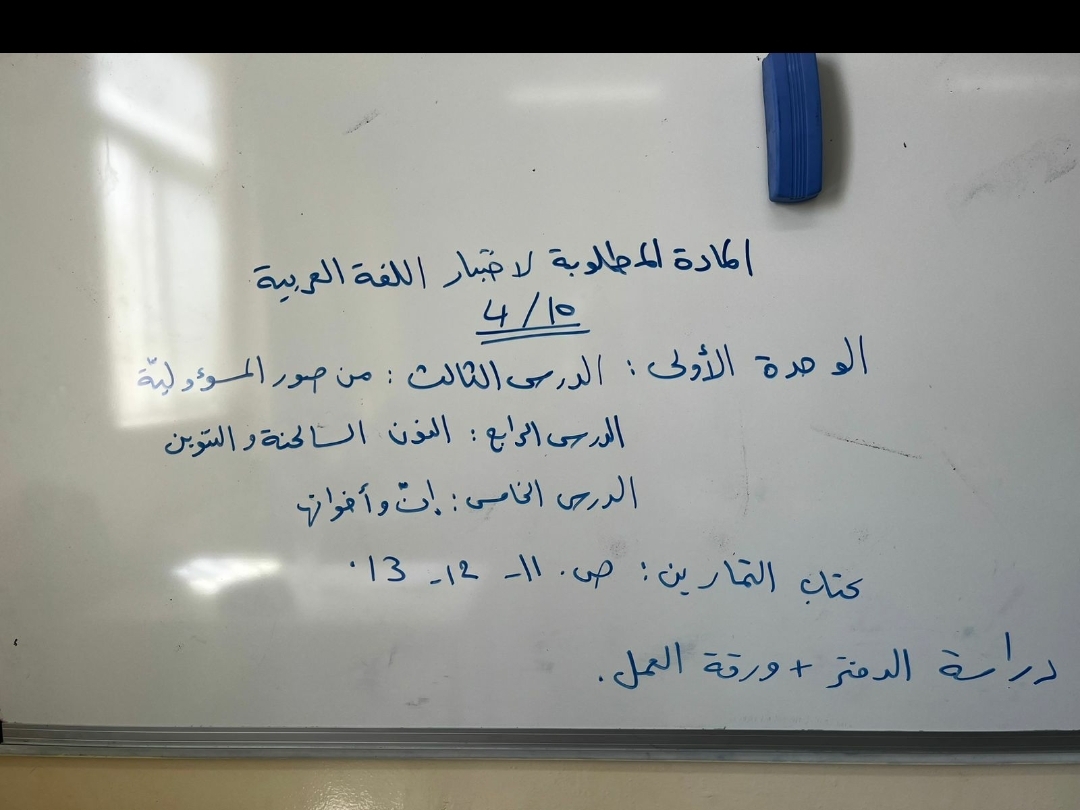 المادة المطلوبة لاختبار اللغة العربية
4/10
الوحدة الأولى: الدرس الثالث: من صور المسؤوليّة
الدرس الرابع: النون الساكنة والتنوين
الدرس الخامس: إنّ وأخواتها
كتاب التمارين: ص. 11- 12- 13.
دراسة الدفتر + ورقة العمل.